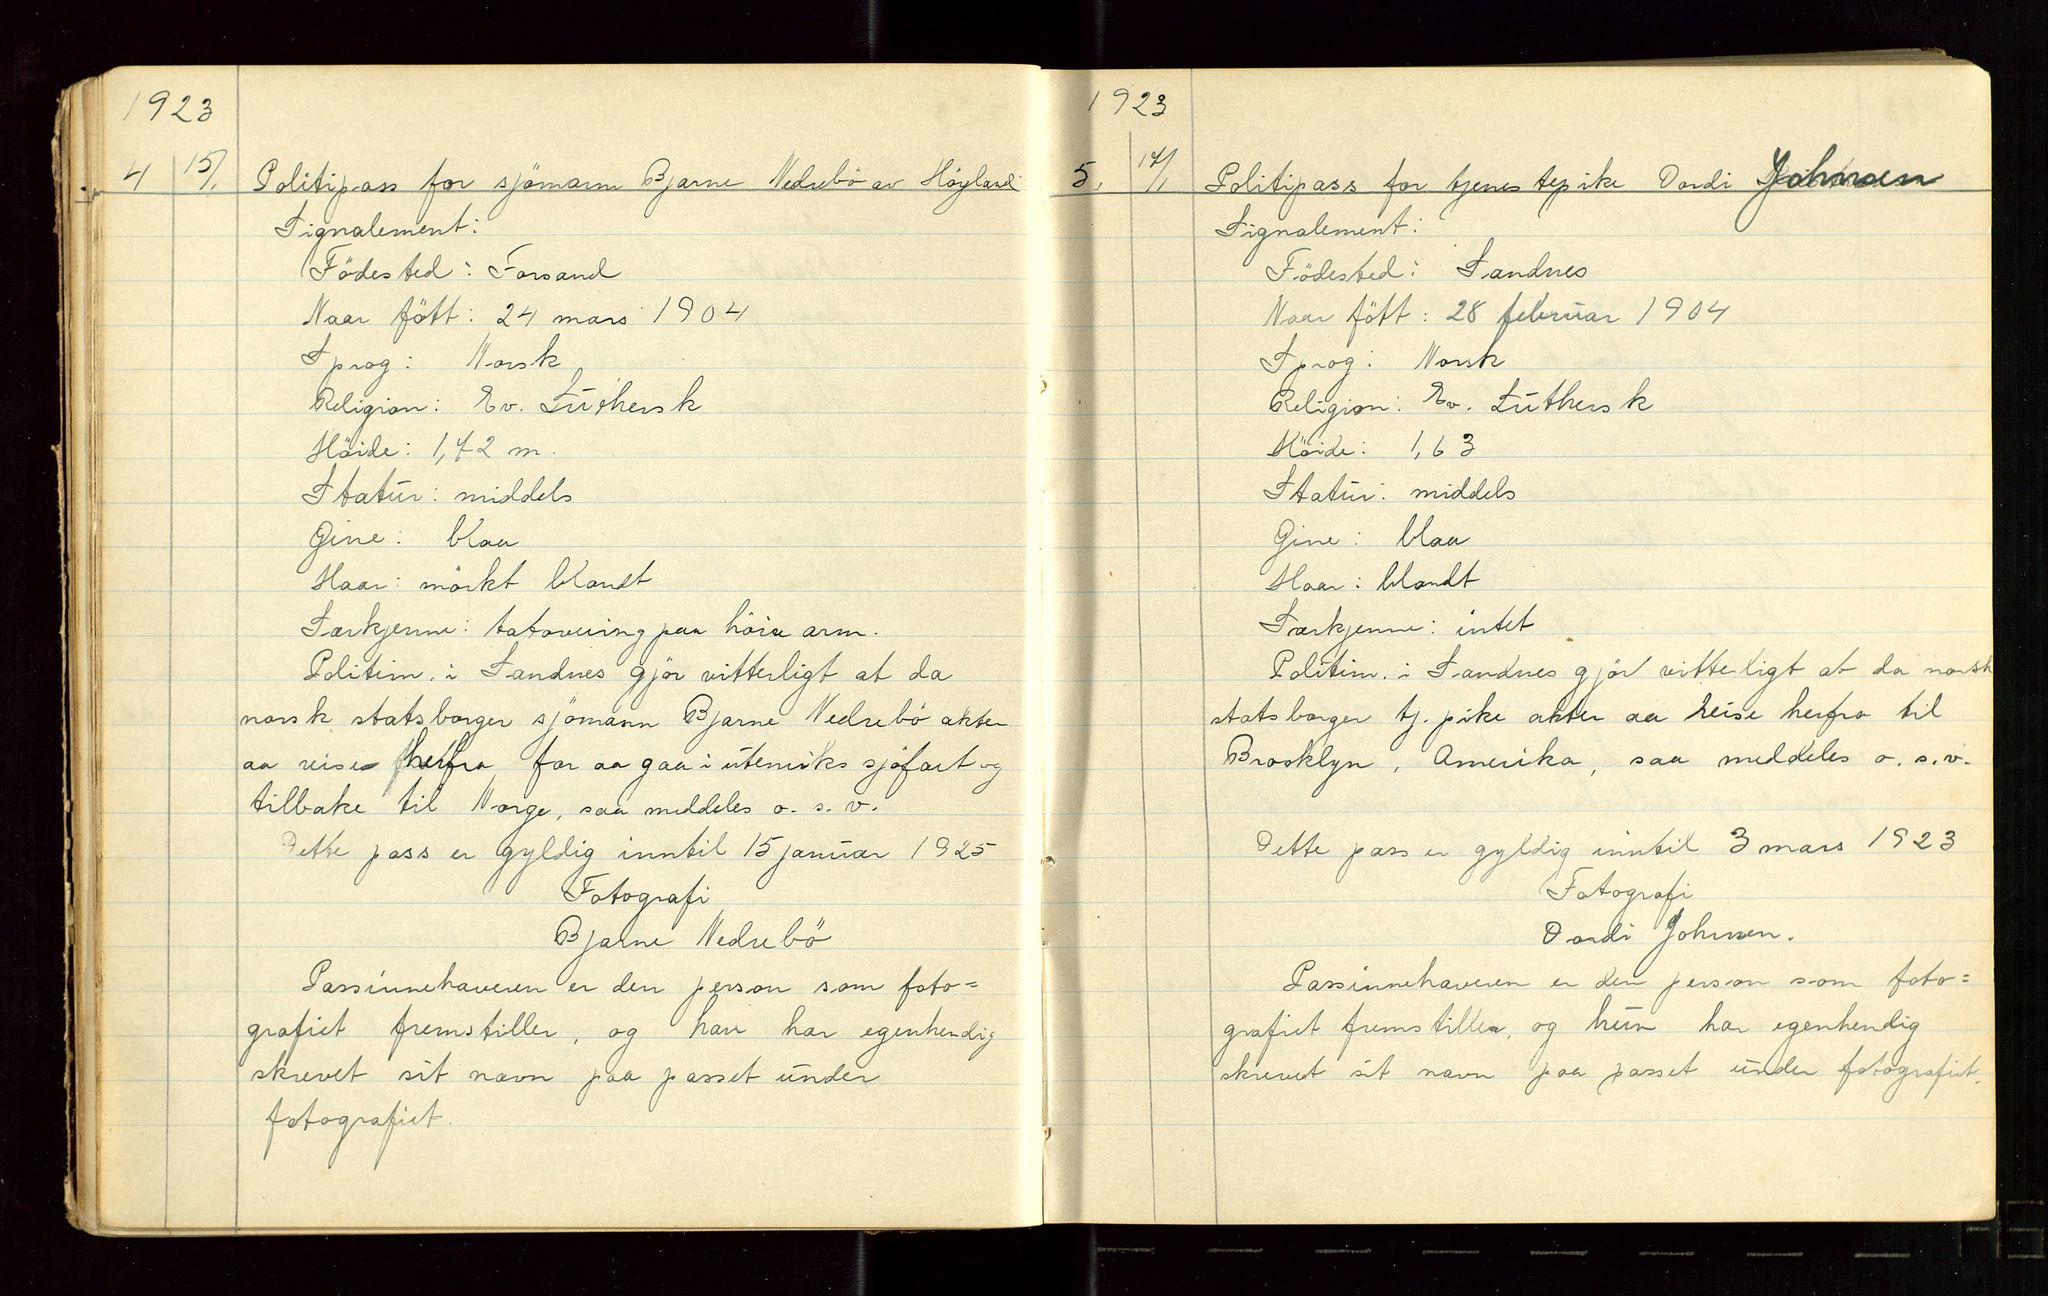 1923
4 15/1. Politipass for sjömann Bjarne Nedrebö av Höyland
Signalement:
Födested: Forsand
Naar fött: 24 mars 1904
Sprog: Norsk
Religion: Ev. Luthersk
Höide: 1,72 m.
Statur: middels
Öine: blaa
Haar: mörkt blondt
Særkjenne: tatovering paa höire arm.
Politim. i Sandnes gjör vitterligt at da
norsk statsborger sjömann Bjarne Nedrebö akter
aa reise herfra for aa gaa i utenriks sjöfart og
tilbake til Norge, saa meddeles o. s. v.
Dette pass er gyldig inntil 15 januar 1925
Fotografi
Bjarne Nedrebö
Passinnehaveren er den person som foto=
grafiet fremstiller, og han har egenhendig
skrevet sit navn paa passet under
fotografiet.
1923
5. 17/1 Politipass for tjenestepike Dordi Johnsen
Signalement:
Födested: Sandnes
Naar fött: 28 februar 1904
Sprog: Norsk
Religion: Ev. Luthersk
Höide: 1,63
Statur: middels
Öine: blaa
Haar: blondt
Særkjenne: intet
Politim. i Sandnes gjör vitterligt at da norsk
statsborger tj. pike akter aa reise herfra til
Brooklyn, Amerika, saa meddeles o. s. v.
Dette pass er gyldig inntil 3 mars 1923
Fotografi
Dordi Johnsen.
Passinnehaveren er den person som foto=
grafiet fremstiller, og hun har egenhendig
skrevet sit navn paa passet under fotografiet.